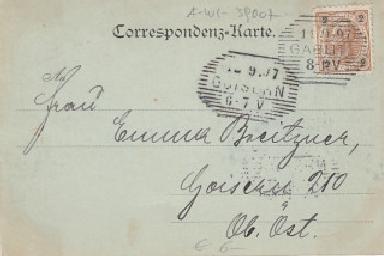 A-WI-39007
Correspondenz-Karte.
2 2
11.9.97
GABLITZ
8-P.V
9.97
GOISERN
6-7.V
Frau
Emma Breitzner,
Goisern 210
Ob. Öst.
€ 6-